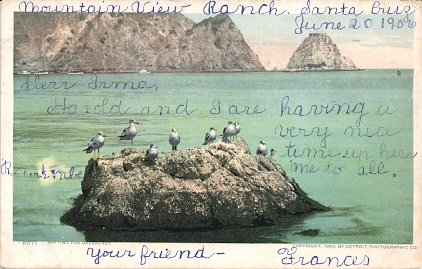 Mountain View Ranch. Santa Cruz
June 20 1906
Dear Irma,
Harold and I are having a
very nice
time up here
Remember me to all.
8571. WAITING FOR BREAKFAST
COPYRIGHT, 1904, BY DETROIT PHOTOGRAPHIC CO.
your friend - Frances